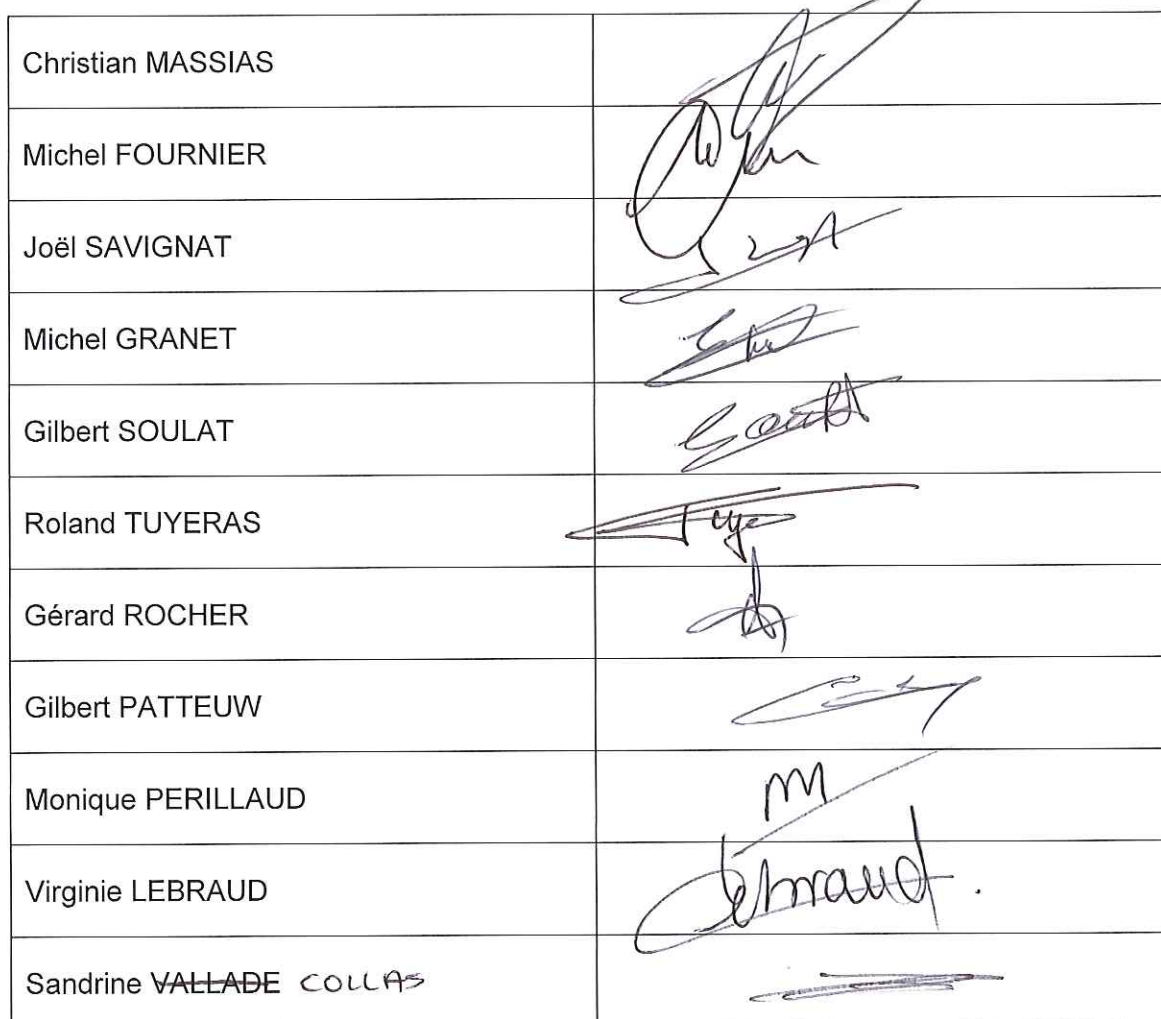 Christian MASSIAS
Michel FOURNIER
Joël SAVIGNAT
Michel GRANET
Gilbert SOULAT
Roland TUYERAS
Gérard ROCHER
Gilbert PATTEUW
Monique PERILLAUD
Virginie LEBRAUD
Lebraud.
Sandrine VALLADE COLLAS